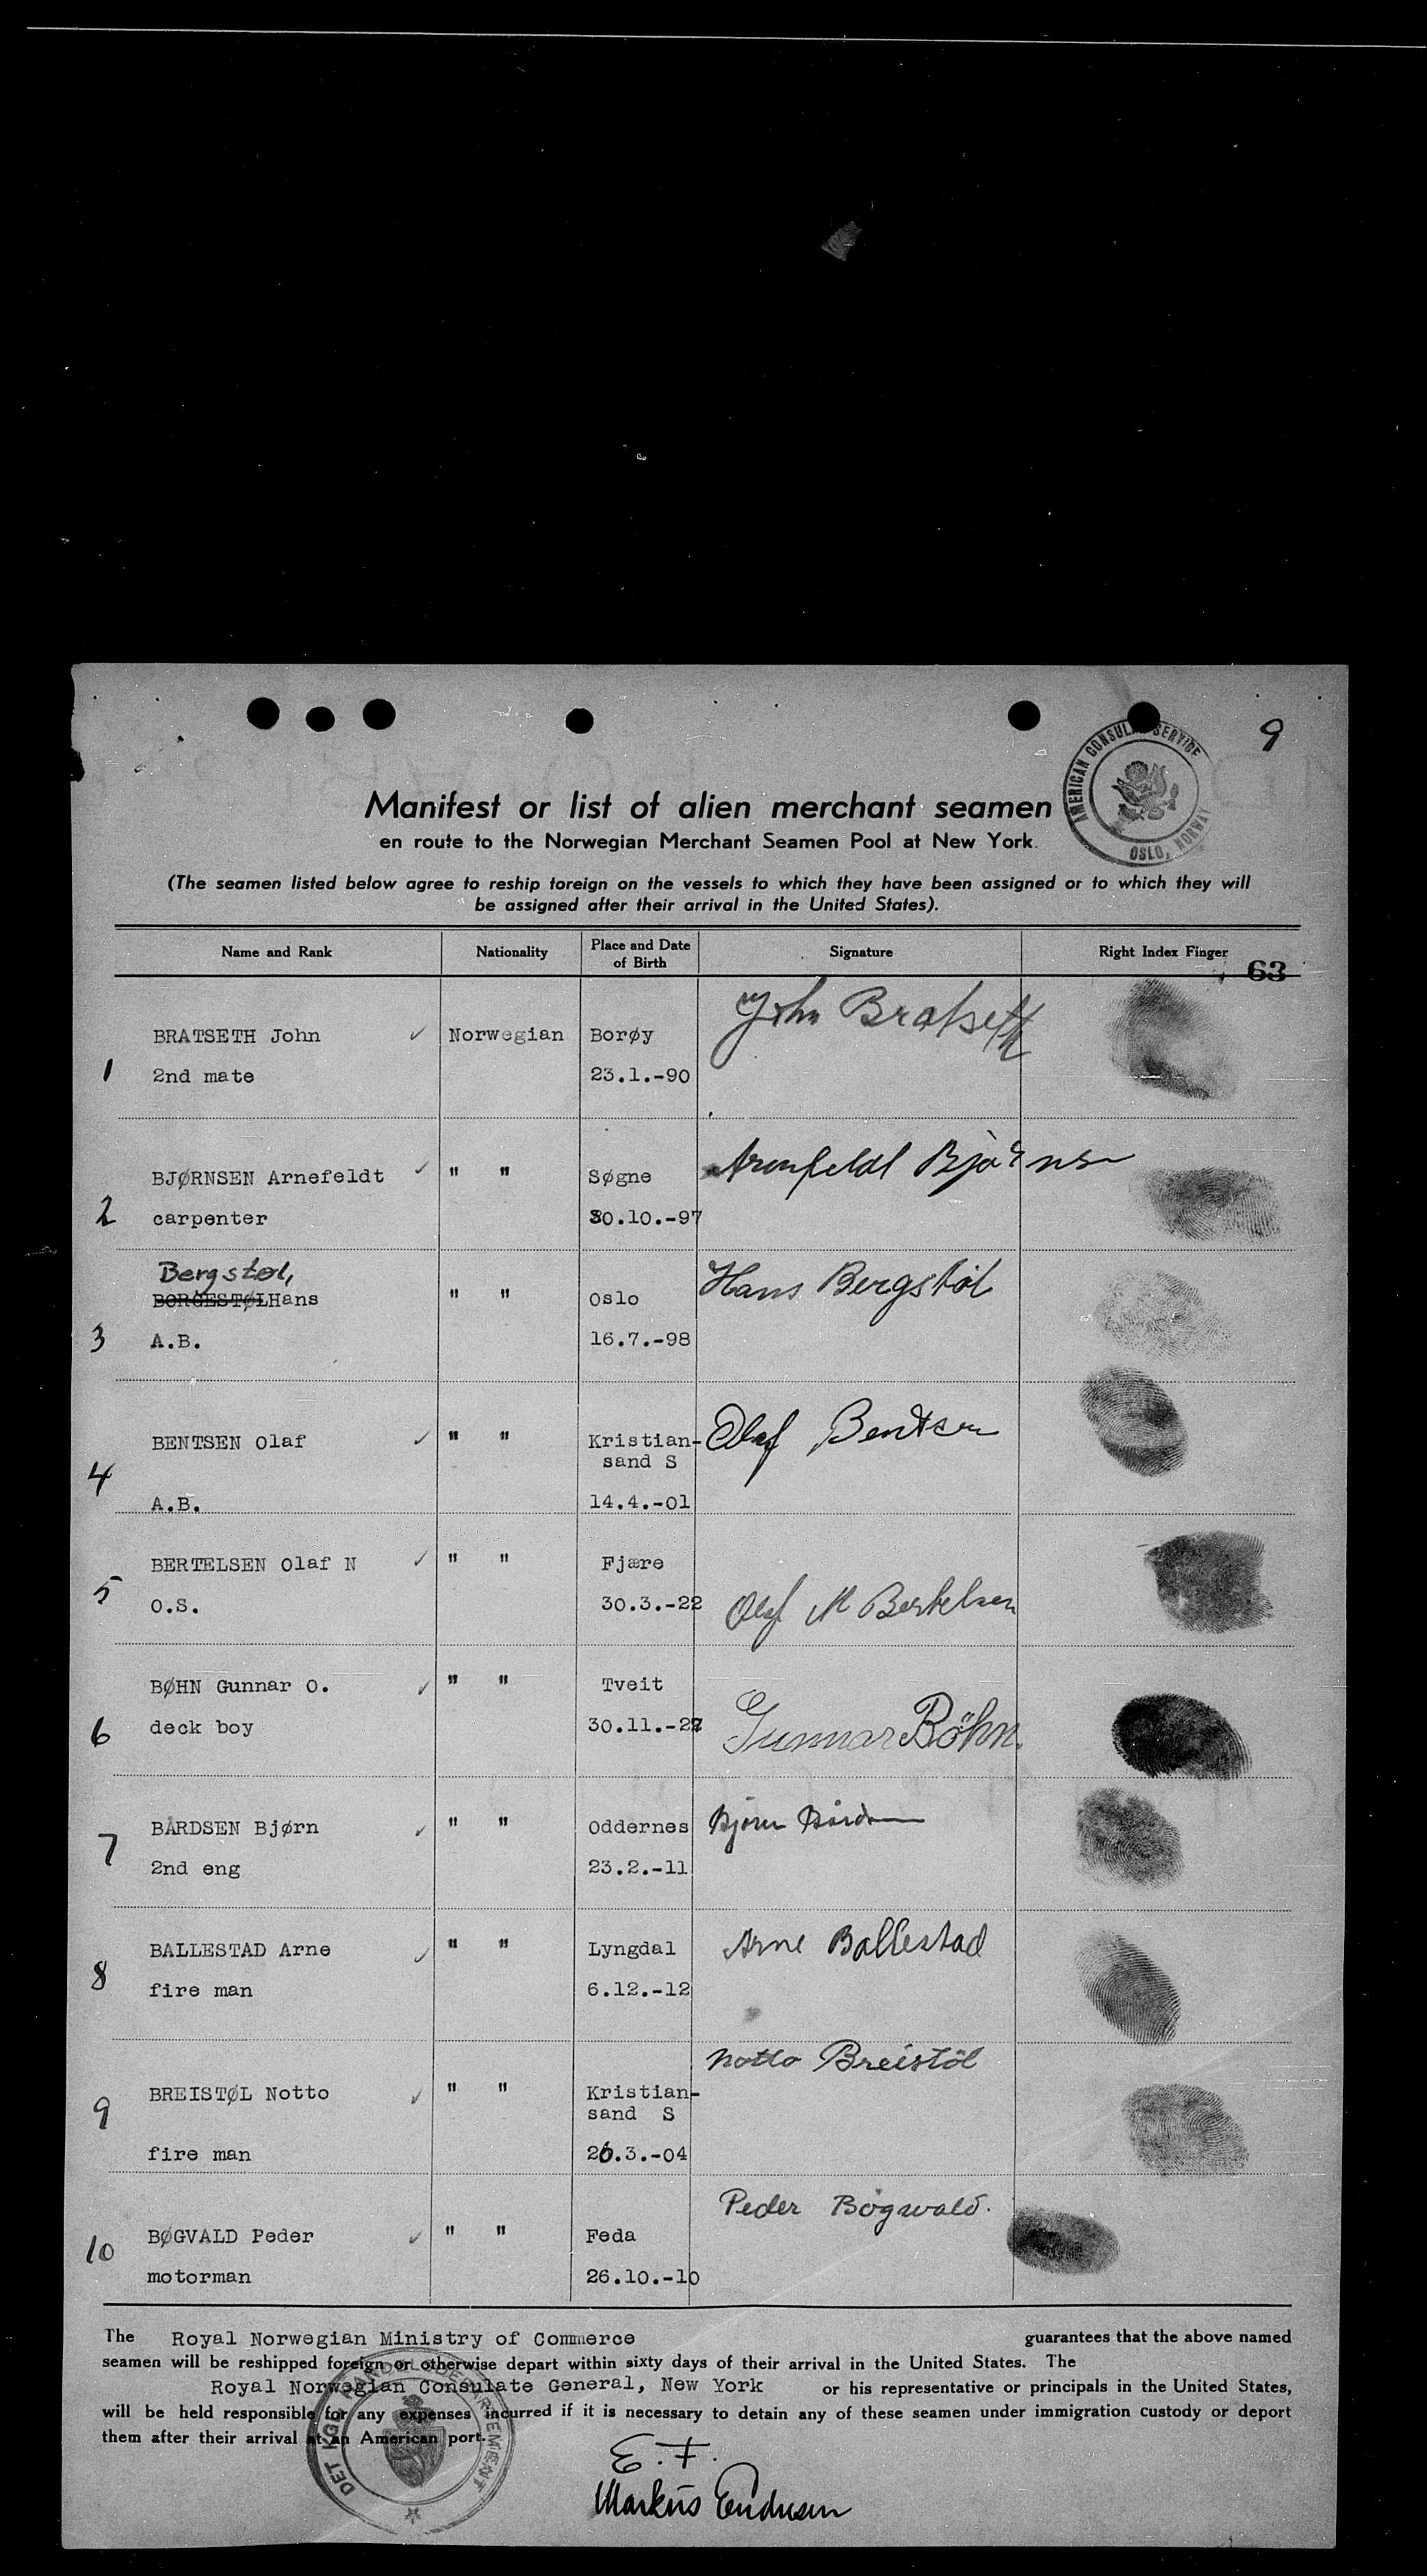 9
AMERICAN CONSULAR SERVICE
OSLO, NORWAY
Manifest or list of alien merchant seamen
en route to the Norwegian Merchant Seamen Pool at New York.
(The seamen listed below agree to reship foreign on the vessels to which they have been assigned or to which they will
be assigned after their arrival in the United States).
Name and Rank Nationality Place and Date of Birth Signature Right Index Finger
63
John Bratseth
BRATSETH John ✓ Norwegian Borøy
1 2nd mate 23.1.-90
Arenfeldt Bjørnsen
BJØRNSEN Arnefeldt ✓ " " Søgne
2 carpenter 30.10.-97
Bergstøl, Hans Bergstöl
BORGESTØL Hans " " Oslo
3 A.B. 16.7.-98
BENTSEN Olaf ✓ " " Kristian- Olaf Bentsen
sand S
4 A.B. 14.4.-01
BERTELSEN Olaf N ✓ " " Fjære
5 O.S. 30.3.-22 Olaf N Bertelsen
BØHN Gunnar O. ✓ " " Tveit
6 deck boy 30.11.-27 Gunnar Böhn.
BÅRDSEN Bjørn ✓ " " Oddernes Bjørn Bårdsen
7 2nd eng 23.2.-11
BALLESTAD Arne ✓ " " Lyngdal Arne Ballestad
8 fire man 6.12.-12
Notto Breistöl
BREISTØL Notto ✓ " " Kristian-
sand S
9 fire man 26.3.-04
Peder Bøgwald.
BØGVALD Peder ✓ " " Feda
10 motorman 26.10.-10
The Royal Norwegian Ministry of Commerce guarantees that the above named
seamen will be reshipped foreign or otherwise depart within sixty days of their arrival in the United States. The
Royal Norwegian Consulate General, New York or his representative or principals in the United States,
will be held responsible for any expenses incurred if it is necessary to detain any of these seamen under immigration custody or deport
them after their arrival at an American port.
DET KGL. HANDELSDEPARTEMENT
E. F.
Markus Endresen